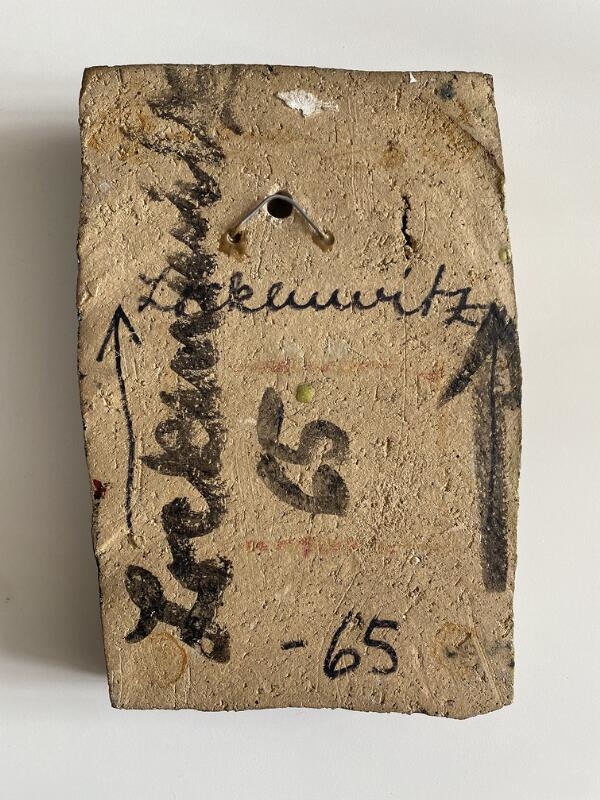 Lockenwitz
Lockenwitz
65
-65